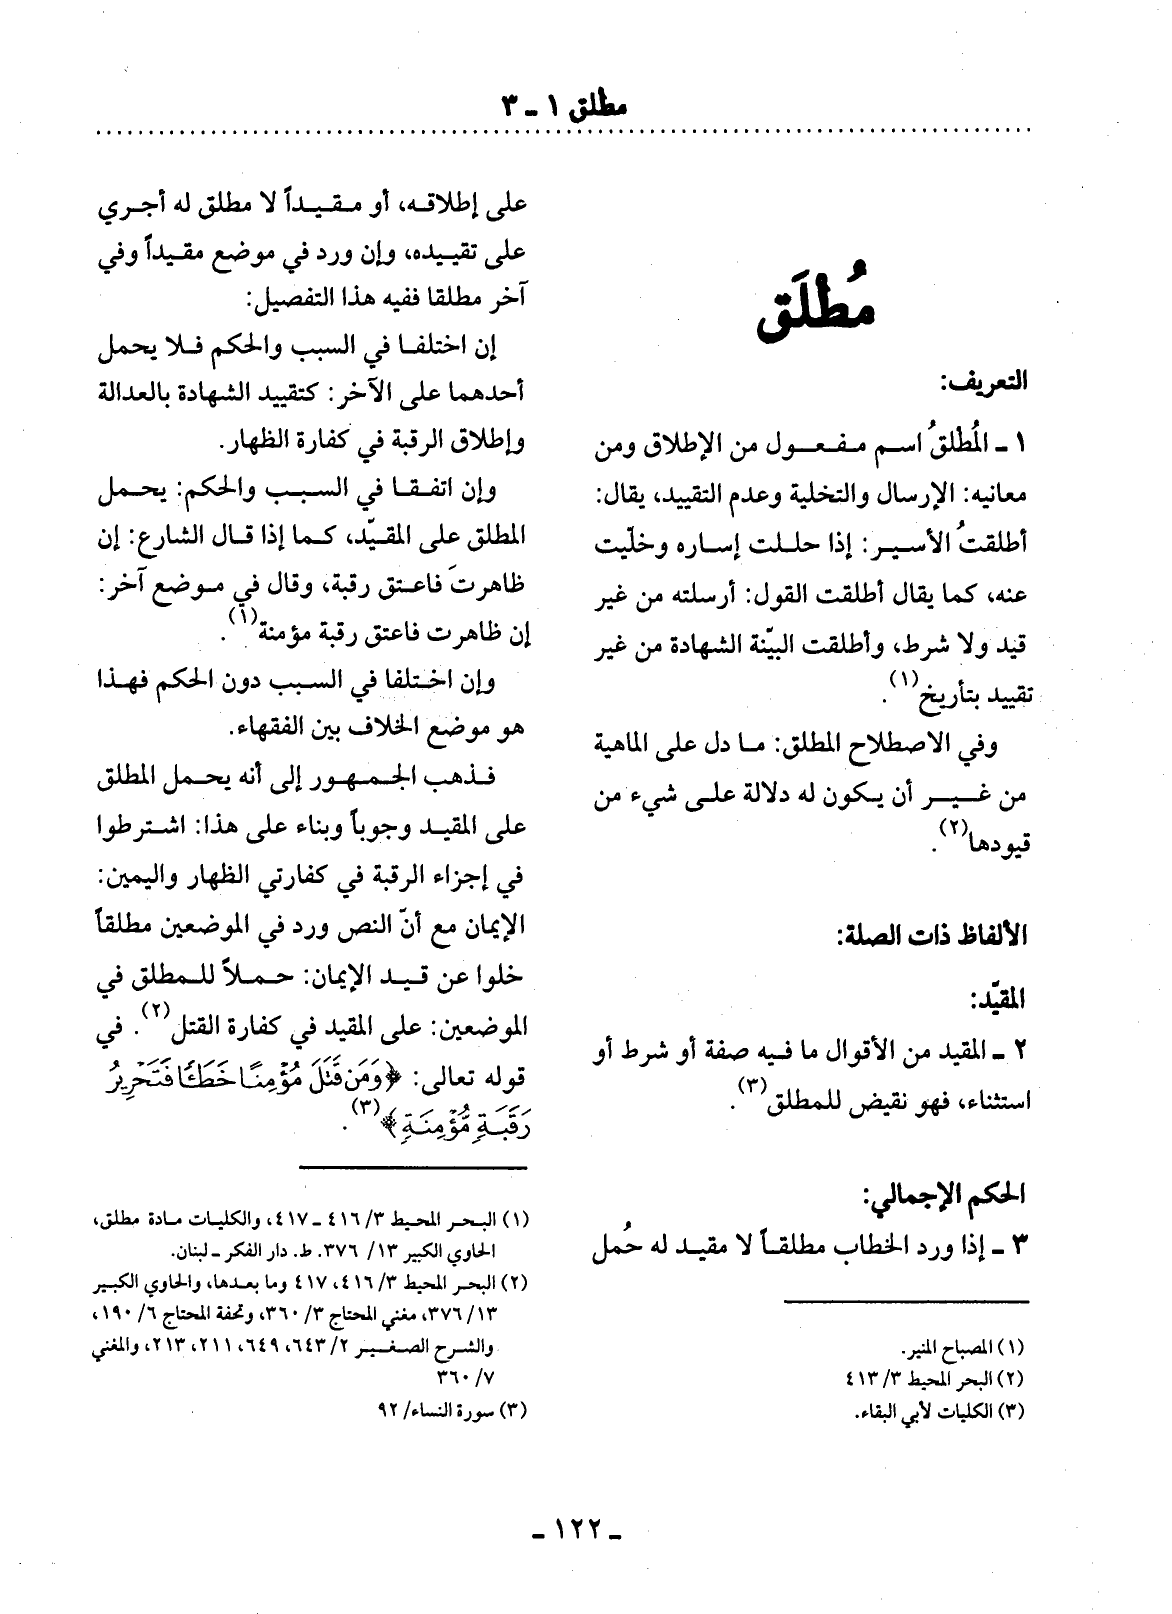 مطلق ١ ـ ٣
مُطْلَق
التعريف:
١ ـ المُطْلقُ اسم مفعول من الإطلاق ومن
معانيه: الإرسال والتخلية وعدم التقييد، يقال:
أطلقتُ الأسير: إذا حللت إساره وخلّيت
عنه، كما يقال أطلقت القول: أرسلته من غير
قيد ولا شرط، وأطلقت البيّنة الشهادة من غير
تقييد بتأريخ(١).
وفي الاصطلاح المطلق: ما دل على الماهية
من غير أن يكون له دلالة على شيء من
قيودها(٢).
الألفاظ ذات الصلة:
المقيّد:
٢ ـ المقيد من الأقوال ما فيه صفة أو شرط أو
استثناء، فهو نقيض للمطلق(٣).
الحكم الإجمالي:
٣ ـ إذا ورد الخطاب مطلقاً لا مقيد له حُمل
(١) المصباح المنير.
(٢) البحر المحيط ٣/ ٤١٣
(٣) الكليات لأبي البقاء.
على إطلاقه، أو مقيداً لا مطلق له أجري
على تقييده، وإن ورد في موضع مقيداً وفي
آخر مطلقا ففيه هذا التفصيل:
إن اختلفا في السبب والحكم فلا يحمل
أحدهما على الآخر: كتقييد الشهادة بالعدالة
وإطلاق الرقبة في كفارة الظهار.
وإن اتفقا في السبب والحكم: يحمل
المطلق على المقيّد، كما إذا قال الشارع: إن
ظاهرتَ فاعتق رقبة، وقال في موضع آخر:
إن ظاهرت فاعتق رقبة مؤمنة(١).
وإن اختلفا في السبب دون الحكم فهذا
هو موضع الخلاف بين الفقهاء.
فذهب الجمهور إلى أنه يحمل المطلق
على المقيد وجوباً وبناء على هذا: اشترطوا
في إجزاء الرقبة في كفارتي الظهار واليمين:
الإيمان مع أنّ النص ورد في الموضعين مطلقاً
خلوا عن قيد الإيمان: حملاً للمطلق في
الموضعين: على المقيد في كفارة القتل(٢). في
قوله تعالى: ﴿وَمَن قَتَلَ مُؤْمِنًا خَطَـًٔا فَتَحْرِيرُ
رَقَبَةٍ مُّؤْمِنَةٍ﴾(٣).
(١) البحر المحيط ٣/ ٤١٦ ـ ٤١٧، والكليات مادة مطلق،
الحاوي الكبير ١٣/ ٣٧٦. ط. دار الفكر ـ لبنان.
(٢) البحر المحيط ٣/ ٤١٦، ٤١٧ وما بعدها، والحاوي الكبير
١٣/ ٣٧٦، مغني المحتاج ٣/ ٣٦٠، وتحفة المحتاج ٦/ ١٩٠،
والشرح الصغير ٢/ ٦٤٣، ٦٤٩، ٢١١، ٢١٣، والمغني
٧/ ٣٦٠
(٣) سورة النساء/ ٩٢
ـ ١٢٢ ـ